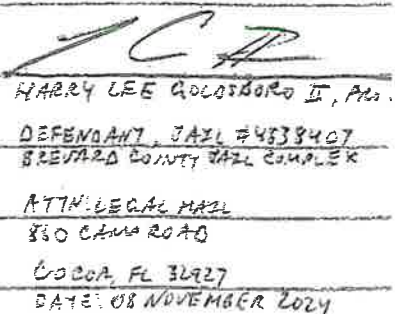 HARRY LEE GOLDSBORO II, PRO.
DEFENDANT, JAIL #4538407
BREVARD COUNTY JAIL COMPLEX
ATTN: LEGAL MAIL
860 CAMP ROAD
COCOA, FL 32927
DATE: 08 NOVEMBER 2024